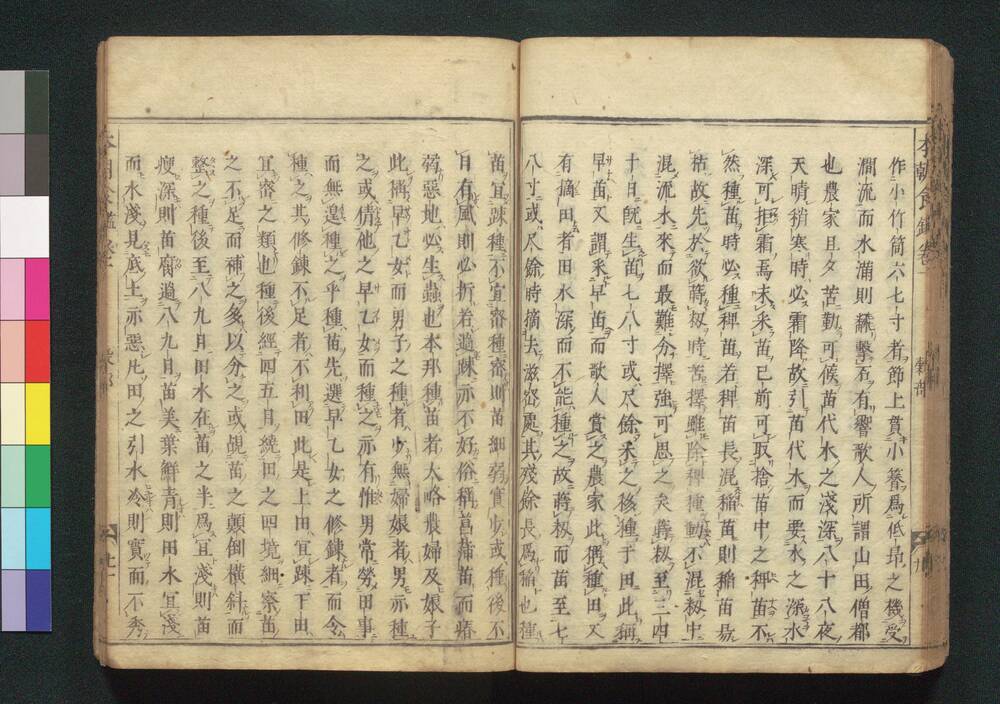 作小竹筒六七寸者節上貫小簪爲低昂之機受
澗流而水滿則翻擊石有響歌人所謂山田僧都
也農家旦夕苦勤可候苗代水之淺深八十八夜
天晴稍寒時必霜降故引苗代水而要水之深水
深可拒霜焉未釆苗已前可取捨苗中之稗苗不
然種苗時必種稗苗若稗苗長混稻苗則稻苗易
枯故先於欲蒔籾時苦擇雖除稗種動不混籾中
混流水來而最難分擇強可思之矣蒔籾至三四
十日既生苗七八寸或尺餘釆之移種于田此稱
早苗又謂釆早苗而歌人賞之農家此稱種田又
有摘田者田水深而不能種之故蒔籾而苗至七
八寸或尺餘時摘去滋密處其殘餘長爲稻也種
苗宜疎種不宜密種密則苗細弱實少或種後不
日有風則必折若過疎亦不好俗稱菖蒲苗而瘠
弱惡地必生蟲也本邦種苗者大略農婦及娘子
此稱早乙女而男子之種者少無婦娘者男亦種
之或倩他之早乙女而種之亦有惟男常勞田事
而無遑種之乎種苗先選早乙女之修鍊者而令
種之其修鍊不足者不利田此是上田宜疎下田
宜密之類也種後經四五月繞田之四境細察苗
之不足而補之多以分之或覘苗之顛倒橫斜而
整之種後至八九月田水在苗之半爲宜淺則苗
瘦深則苗腐過八九月苗美葉鮮青則田水宜淺
而水淺見底土亦惡凡田之引水冷則實而不秀
本朝食鑑卷一
穀部
九
本朝食鑑卷一
穀部
廿一